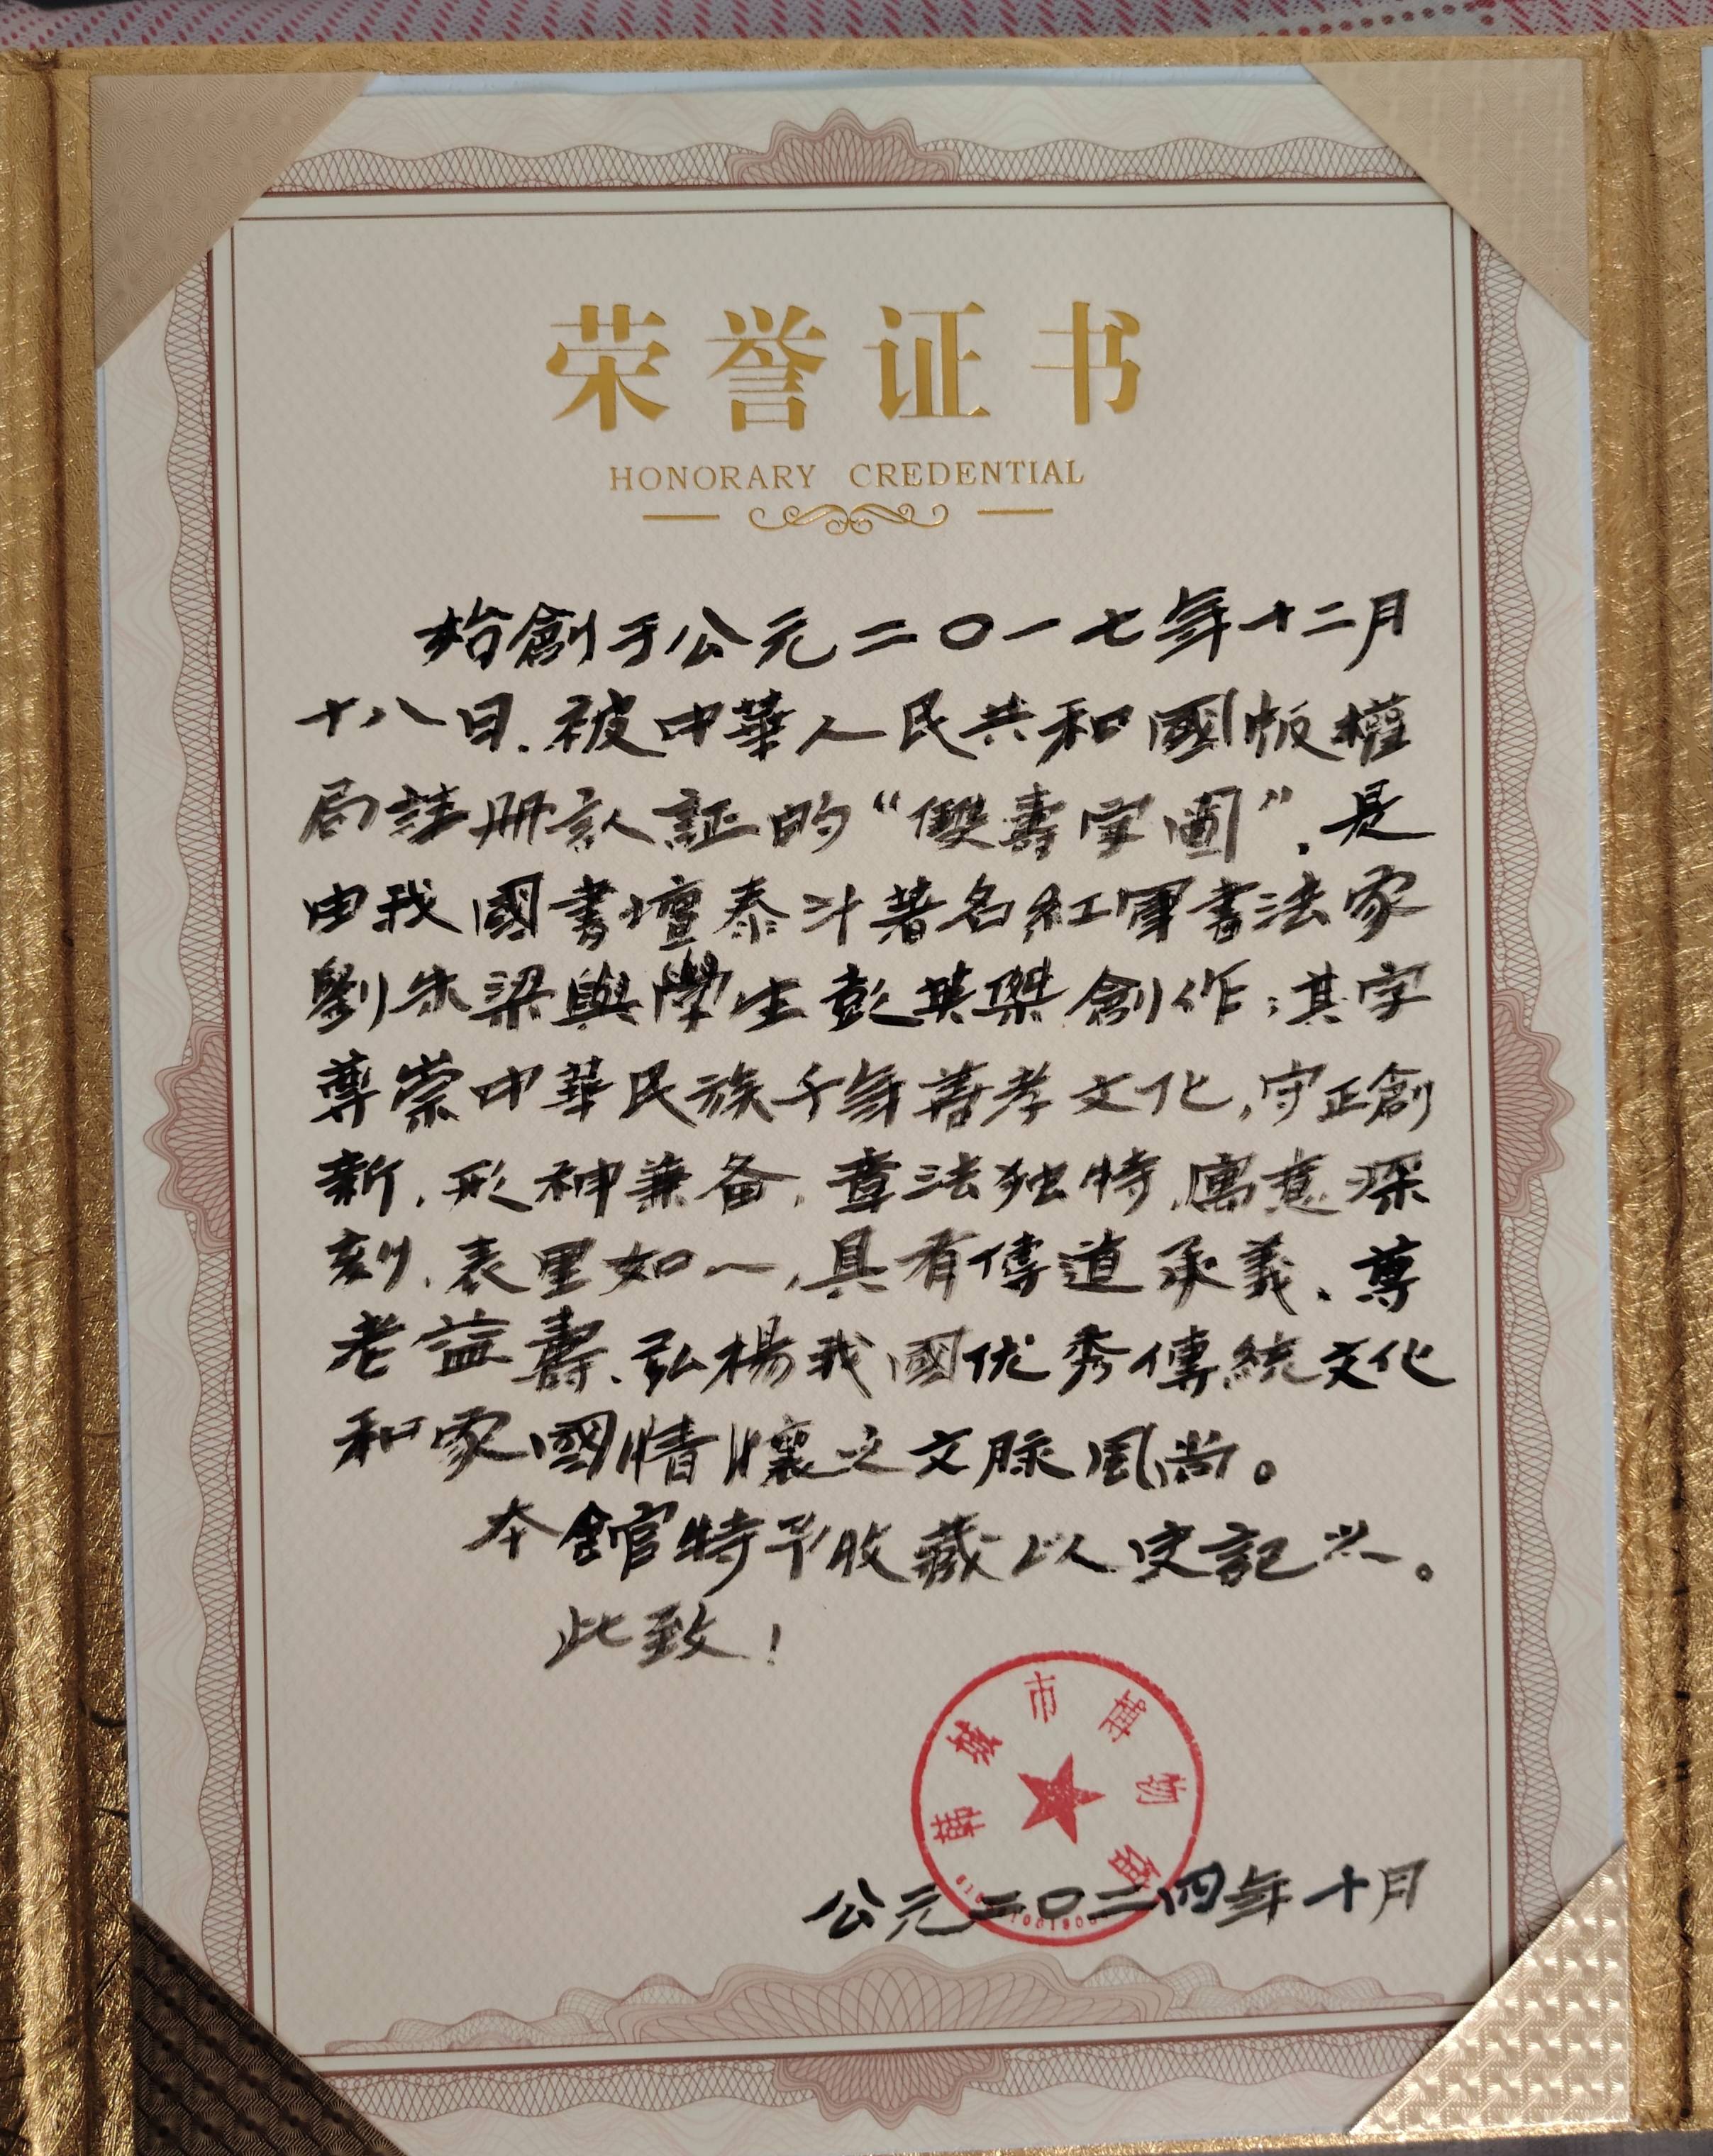 荣誉证书
HONORARY CREDENTIAL
始創于公元二〇一七年十二月
十八日.被中華人民共和國版權
局註冊認証的“雙壽字圖”.是
由我國書壇泰斗著名紅軍書法家
劉朱梁與學生彭英傑創作;其字
尊崇中華民族千年善孝文化,守正創
新.形神兼备.章法独特.寓意深
刻.表里如一,具有傳道承義、尊
老益壽、弘楊我國优秀傳統文化
和家國情懷之文脉風尚。
本館特予收藏以史記兴。
此致!
韩城市博物馆
公元二〇二四年十月